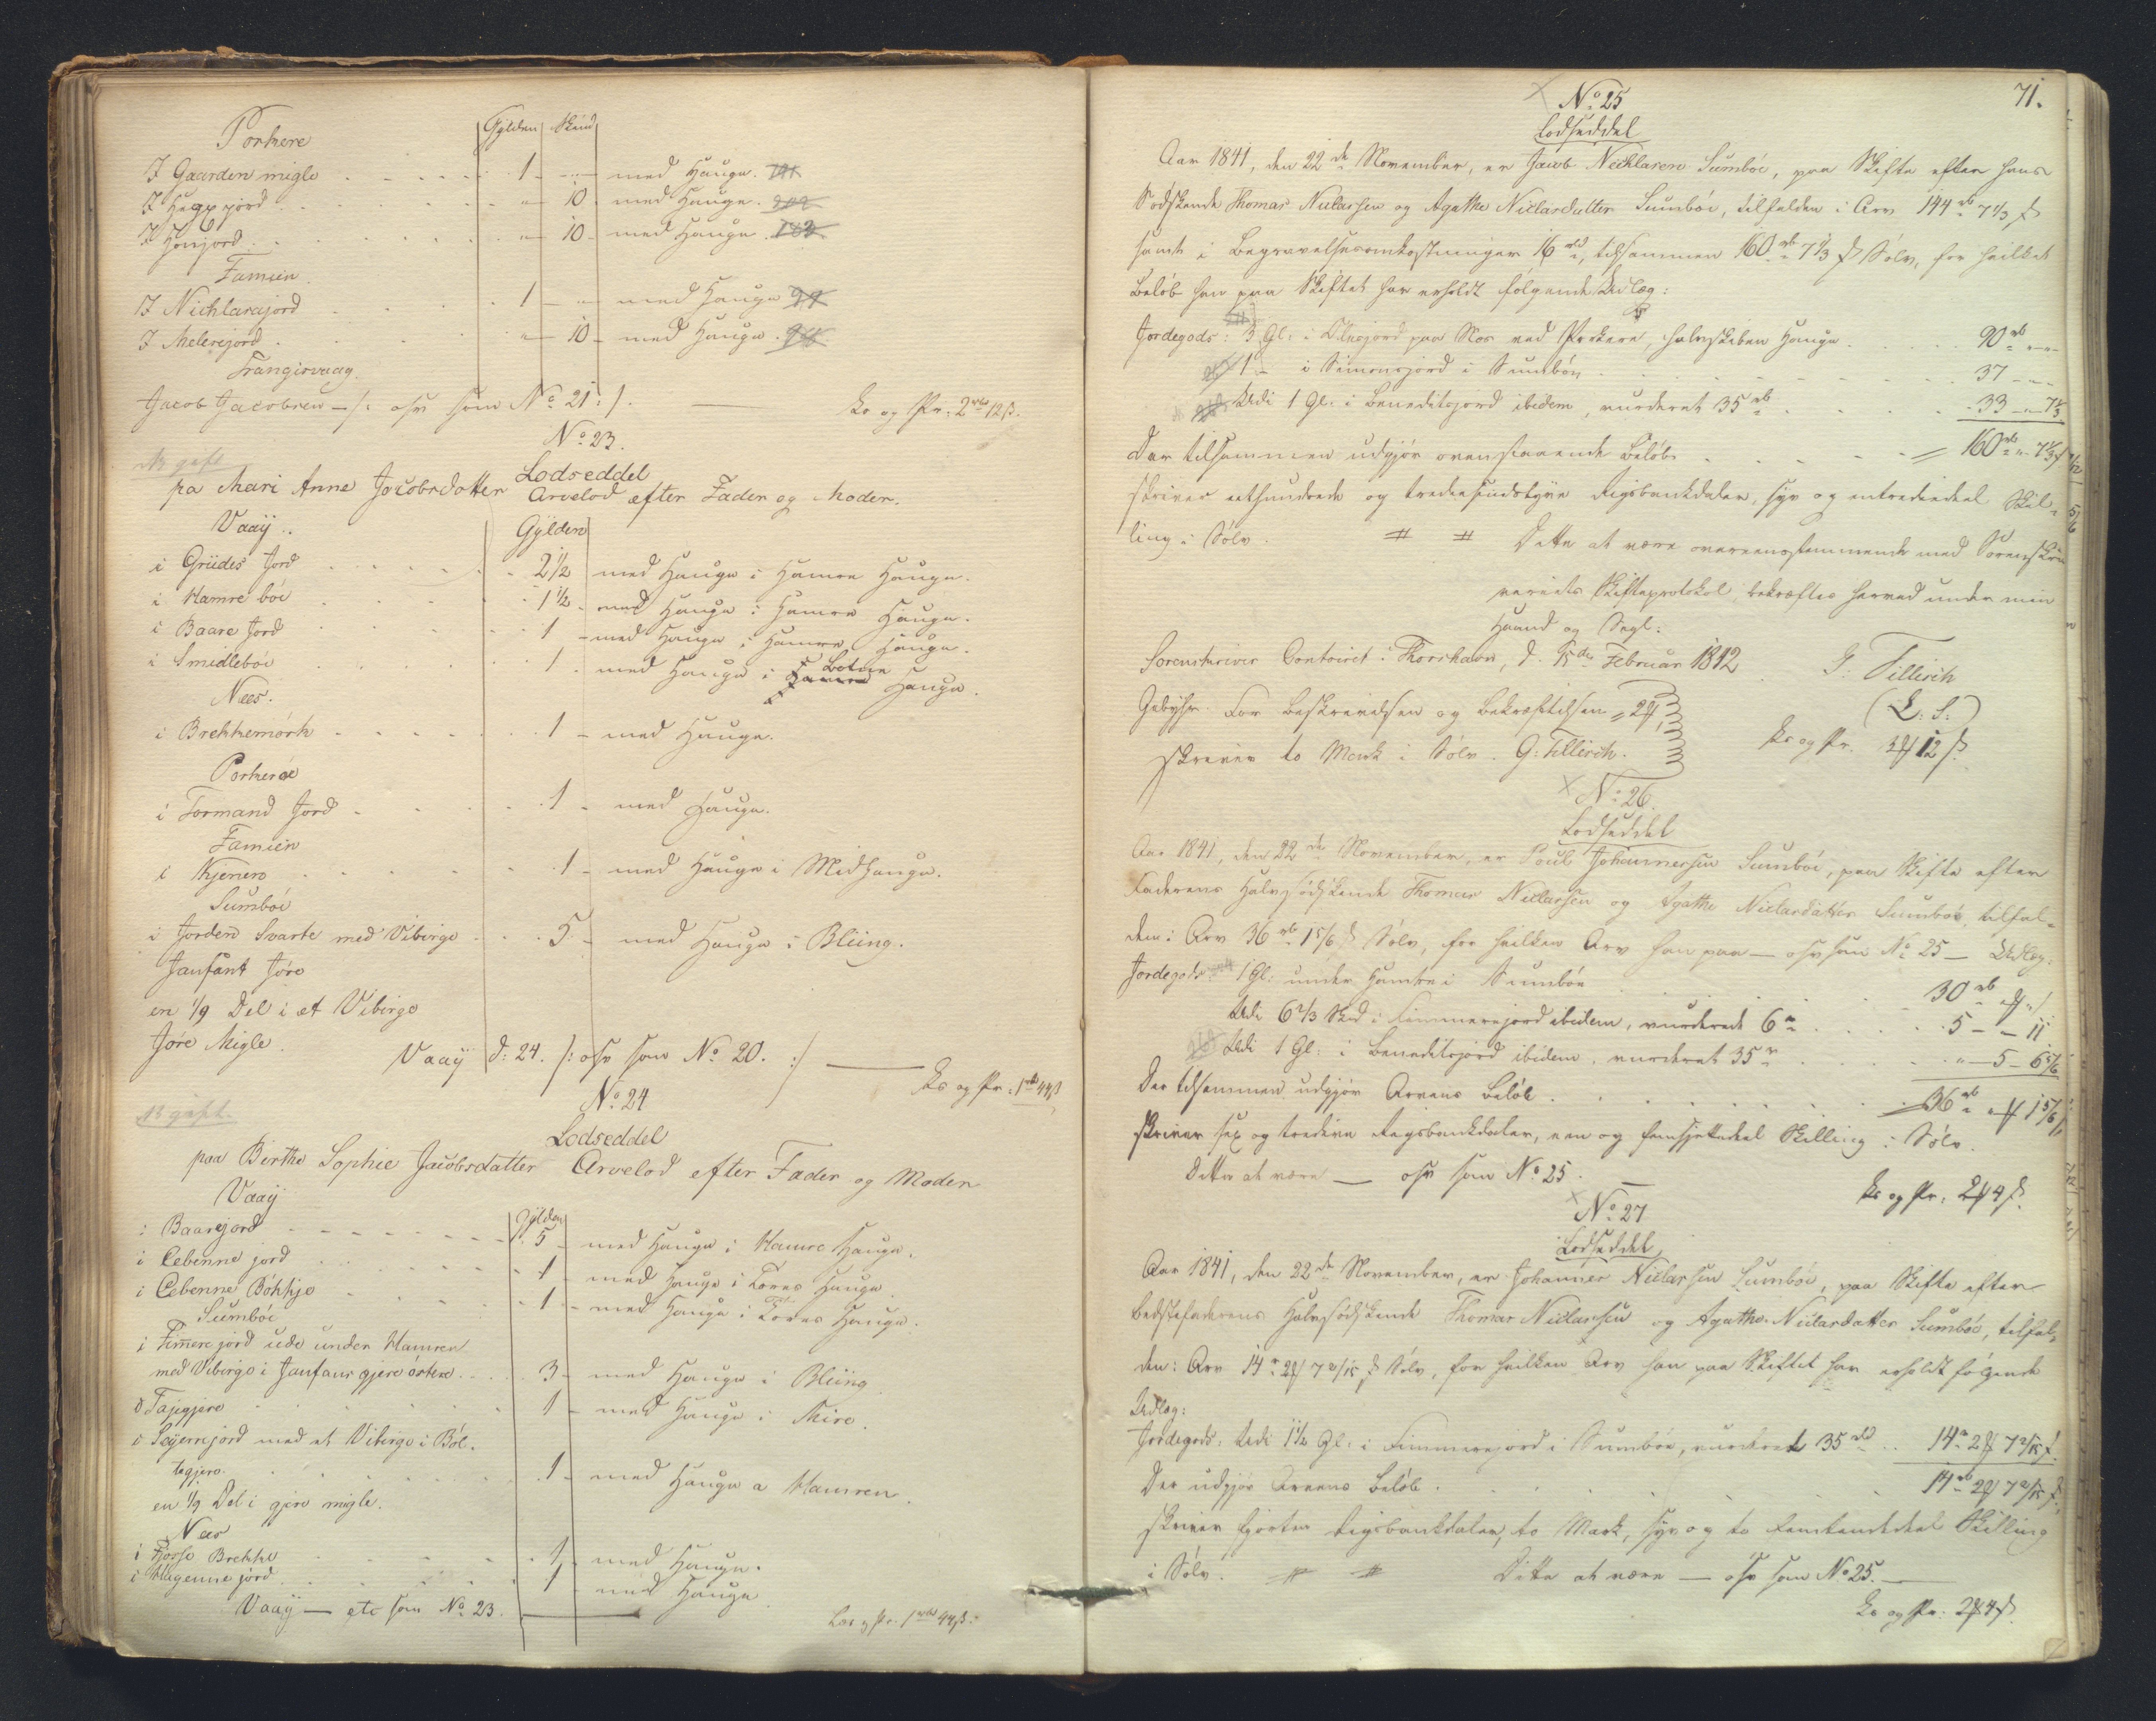 Porkere
Gylden Skind
I Gaarden migle 1 - " - med Hauge.
I Heggjord " 10 - med Hauge.
I Honjord " 10 - med Hauge.
Famien
I Nichlasajord 1 - " - med Hauge
I Melerijord " 10 - med Hauge.
Trangisvaag.
Jacob Jacobsen -/: osv som No 21 :/. Ls og Pr: 2 rbd 12 β.
No 23.
Lodseddel
pa Mari Anne Jacobsdatter Arvelod efter Fader og Moder.
Vaaÿ. Gÿlden
i Grüdes Jord 2 1/2 med Hauge i Hamre Hauge.
i Hamre böe 1 1/2 - med Hauge i Hamre Hauge.
i Baare Jord 1 - med Hauge i Hamre Hauge.
i Smidleböe 1 - med Hauge i Botne Hauge.
Nees.
i Brekkemörk 1 - med Hauge.
Porkeröe
i Tormand Jord 1 - med Hauge.
Famien
i Kjenen 1 - med Hauge i Midhauge.
Sumböe
i Jorden Svarte med Vibirge 5 - med Hauge i Bliing.
Janfant Jöre
en 1/9 Del i et Vibirge
Jöre Migle.
Vaaÿ d: 24. /: osv som No 20. :/ Ls og Pr: 1 rbd 44 β
No 24
Lodseddel
paa Birthe Sophie Jacobsdatter Arvelod efter Fader og Moder
Vaaÿ Gÿlden
i Baarejord 5 - med Hauge i Hamre Hauge.
i Cebenne jord 1 - med Hauge i Tores Hauge.
i Cebenne Bökkje 1 - med Hauge i Tores Hauge.
Sumböe
i Fimere jord ude under Hamren
med Vibirge i Janfans gjere östere 3 - med Hauge i Bliing
1 - med Hauge i Mire.
i Seÿerrijord med et Vibirge i Böl-
tegjere. 1 - med Hauge a Hamren.
en 1/9 Del i gjere migle.
Nees
i Fjosse Brekke 1 - med Hauge.
i Hugenne jord 1 - med Hauge.
Vaaÿ — etc som No 23. Ls og Pr. 1 rbd 44 β.
71.
No 25
Lodseddel
Aar 1841, den 22de November, er Jacob Nicklasen Sumböe, paa Skifte efter hans
Södskende Thomas Niclassen og Agathe Niclasdatter Sumböe, tilfalden i Arv 144 rb 7 1/3 β
samt i Begravelsesomkostninger 16 rbd, tilsammen 160 rb 7 1/3 β Sölv, for hvilket
Belöb han paa Skiftet har erholdt fölgende Udlæg:
Jordegods: 3 Gl: i Ölnsjord paa Nes ved Porkere, halvskeben Hauge 90 rb " "
1 - i Simonsjord i Sumböe 37 - " "
Udi 1 Gl: i Beneditsjord ibidem, vurderet 35 rb 33 - " 7 1/3
Der tilsammen udgjör ovenstaaende Belöb 160 rb " 7 1/3 β
skriver eethundrede og tredsindstyve Rigsbankdaler, syv og entrediedeel Skil-
ling i Sölv. Dette at være overeensstemmende med Sorenskri-
veriets Skifteprotokol, bekræftes herved under min
Haand og Segl.
Sorenskriver Contoiret i Thorshavn, d. 15de Februar 1842 G: Tillisch
(L: S:)
Gebyhr. For Beskrivelsen og Bekræftelsen
skriver to Mark i Sölv. G: Tillisch. Ls og Pr. 3 # 12 β.
No 26.
Lodseddel
Aar 1841, den 22de November, er Poul Johannessen Sumböe, paa Skifte efter
Faderens Halvsödskende Thomas Niclassen og Agathe Niclasdatter Sumböe, tilfal-
den i Arv 36 rb 1 5/6 β Sölv, for hvilken Arv han paa — osv som No 25 — Udlæg:
Jordegods: 1 Gl: under Hamre i Sumböe 30 rb
Udi 6 2/3 Skd i Fimmerejord ibidem, vurderet 6 5 - - 11
Udi 1 Gl: i Beneditsjord ibidem, vurderet 35 " - 5 - 6 5/6
Der tilsammen udgjör Arvens Belöb 36 rb " # 1 5/6
skriver sex og tredive Rigsbankdaler, een og femsjettedeel Skilling i Sölv.
Dette at være — osv som No 25.
Ls og Pr: 2 # 4 β.
No 27
Lodseddel
Aar 1841, den 22de November, er Johannes Niclassen Sumböe, paa Skifte efter
Bedstefaderens Halvsödskende Thomas Niclassen og Agathe Niclasdatter Sumböe, tilfal-
den i Arv 14 rb 2 # 7 2/15 β Sölv, for hvilken Arv han paa Skiftet har erholdt fölgende
Udlæg:
Jordegods: Udi 1 1/2 Gl: i Fimmerejord i Sumböe, vurderet 35 rbd 14 rb 2 # 7 2/15 β.
Der udgjör Arvens Belöb 14 rb 2 # 7 2/15 β.
skriver fjorten Rigsbankdaler, to Mark, syv og to Femtendedeel Skilling
i Sölv. Dette at være — osv som No 25.
Ls og Pr: 2 # 4 β.